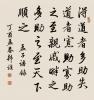 得道者多助失
道者寡助寡助
之至親戚畔之
多助之至天下
順之 孟子語錄
丁酉孟春